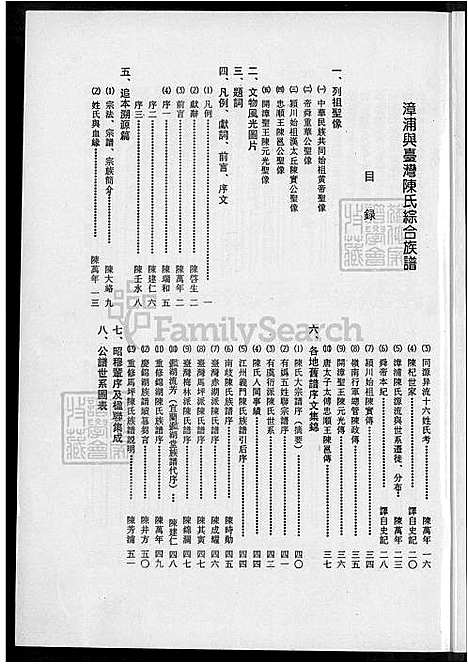 漳浦與臺灣陳氏綜合族譜
目錄
一、列祖聖像
㈠中華民族共同始祖黃帝聖像
㈡帝舜重華公聖像
㈢潁川始祖漢太丘陳實公聖像
㈣忠順王陳邕公聖像
㈤開漳聖王陳元光聖像
二、文物風光圖片
三、題詞
四、凡例、獻詞、前言、序文
⑴凡例……一
⑵獻辭……陳啓生 二
⑶前言……陳萬年 二
⑷序一……陳瑞和 五
序二……陳建仁 六
序三……陳壬水 八
五、追本溯源篇
⑴宗法、宗譜、宗族簡介……陳大絡 九
⑵姓氏與血緣……陳萬年 一三
⑶同源异流十六姓氏考……陳萬年 一六
⑷陳杞世家……譯自史記 二〇
⑸漳浦陳氏源流與世系遷徙、分布……陳萬年 二三
⑹舜帝本紀……譯自史記 二八
⑺潁川始祖陳實傳……三四
⑻嶺南行軍總管陳政傳……三五
⑼開漳聖王陳元光傳……三六
⑽唐太子太傅忠順王陳邕傳……三七
六、各地舊譜序文集錦
⑴陳氏大宗譜序（摘要）……四〇
⑵有嬀五姓聯宗譜序……四一
⑶有虞衍派陳氏世系……四二
⑷陳氏人閩事績……四三
⑸江州義門陳氏族譜引后序……四四
⑹南岐陳氏族譜序……陳時勛 四四
⑺臺灣赤湖派陳氏譜序……陳成耀 四六
⑻臺灣馬坪派陳氏譜序……陳其寅 四七
⑼臺灣梅林派陳氏譜序……陳錦瀾 四七
⑽鑑湖流芳（宜蘭鑑湖堂族譜代序）……陳建仁 四八
⑾重修錦湖陳氏族譜序……陳萬年 四九
⑿慶錦湖族譜續慕銘言……陳井方 五〇
⒀重修馬坪陳氏族譜說明……陳芳濤 五一
七、昭穆輩序及楹聯集成
八、公譜世系圖表
FamilySearch